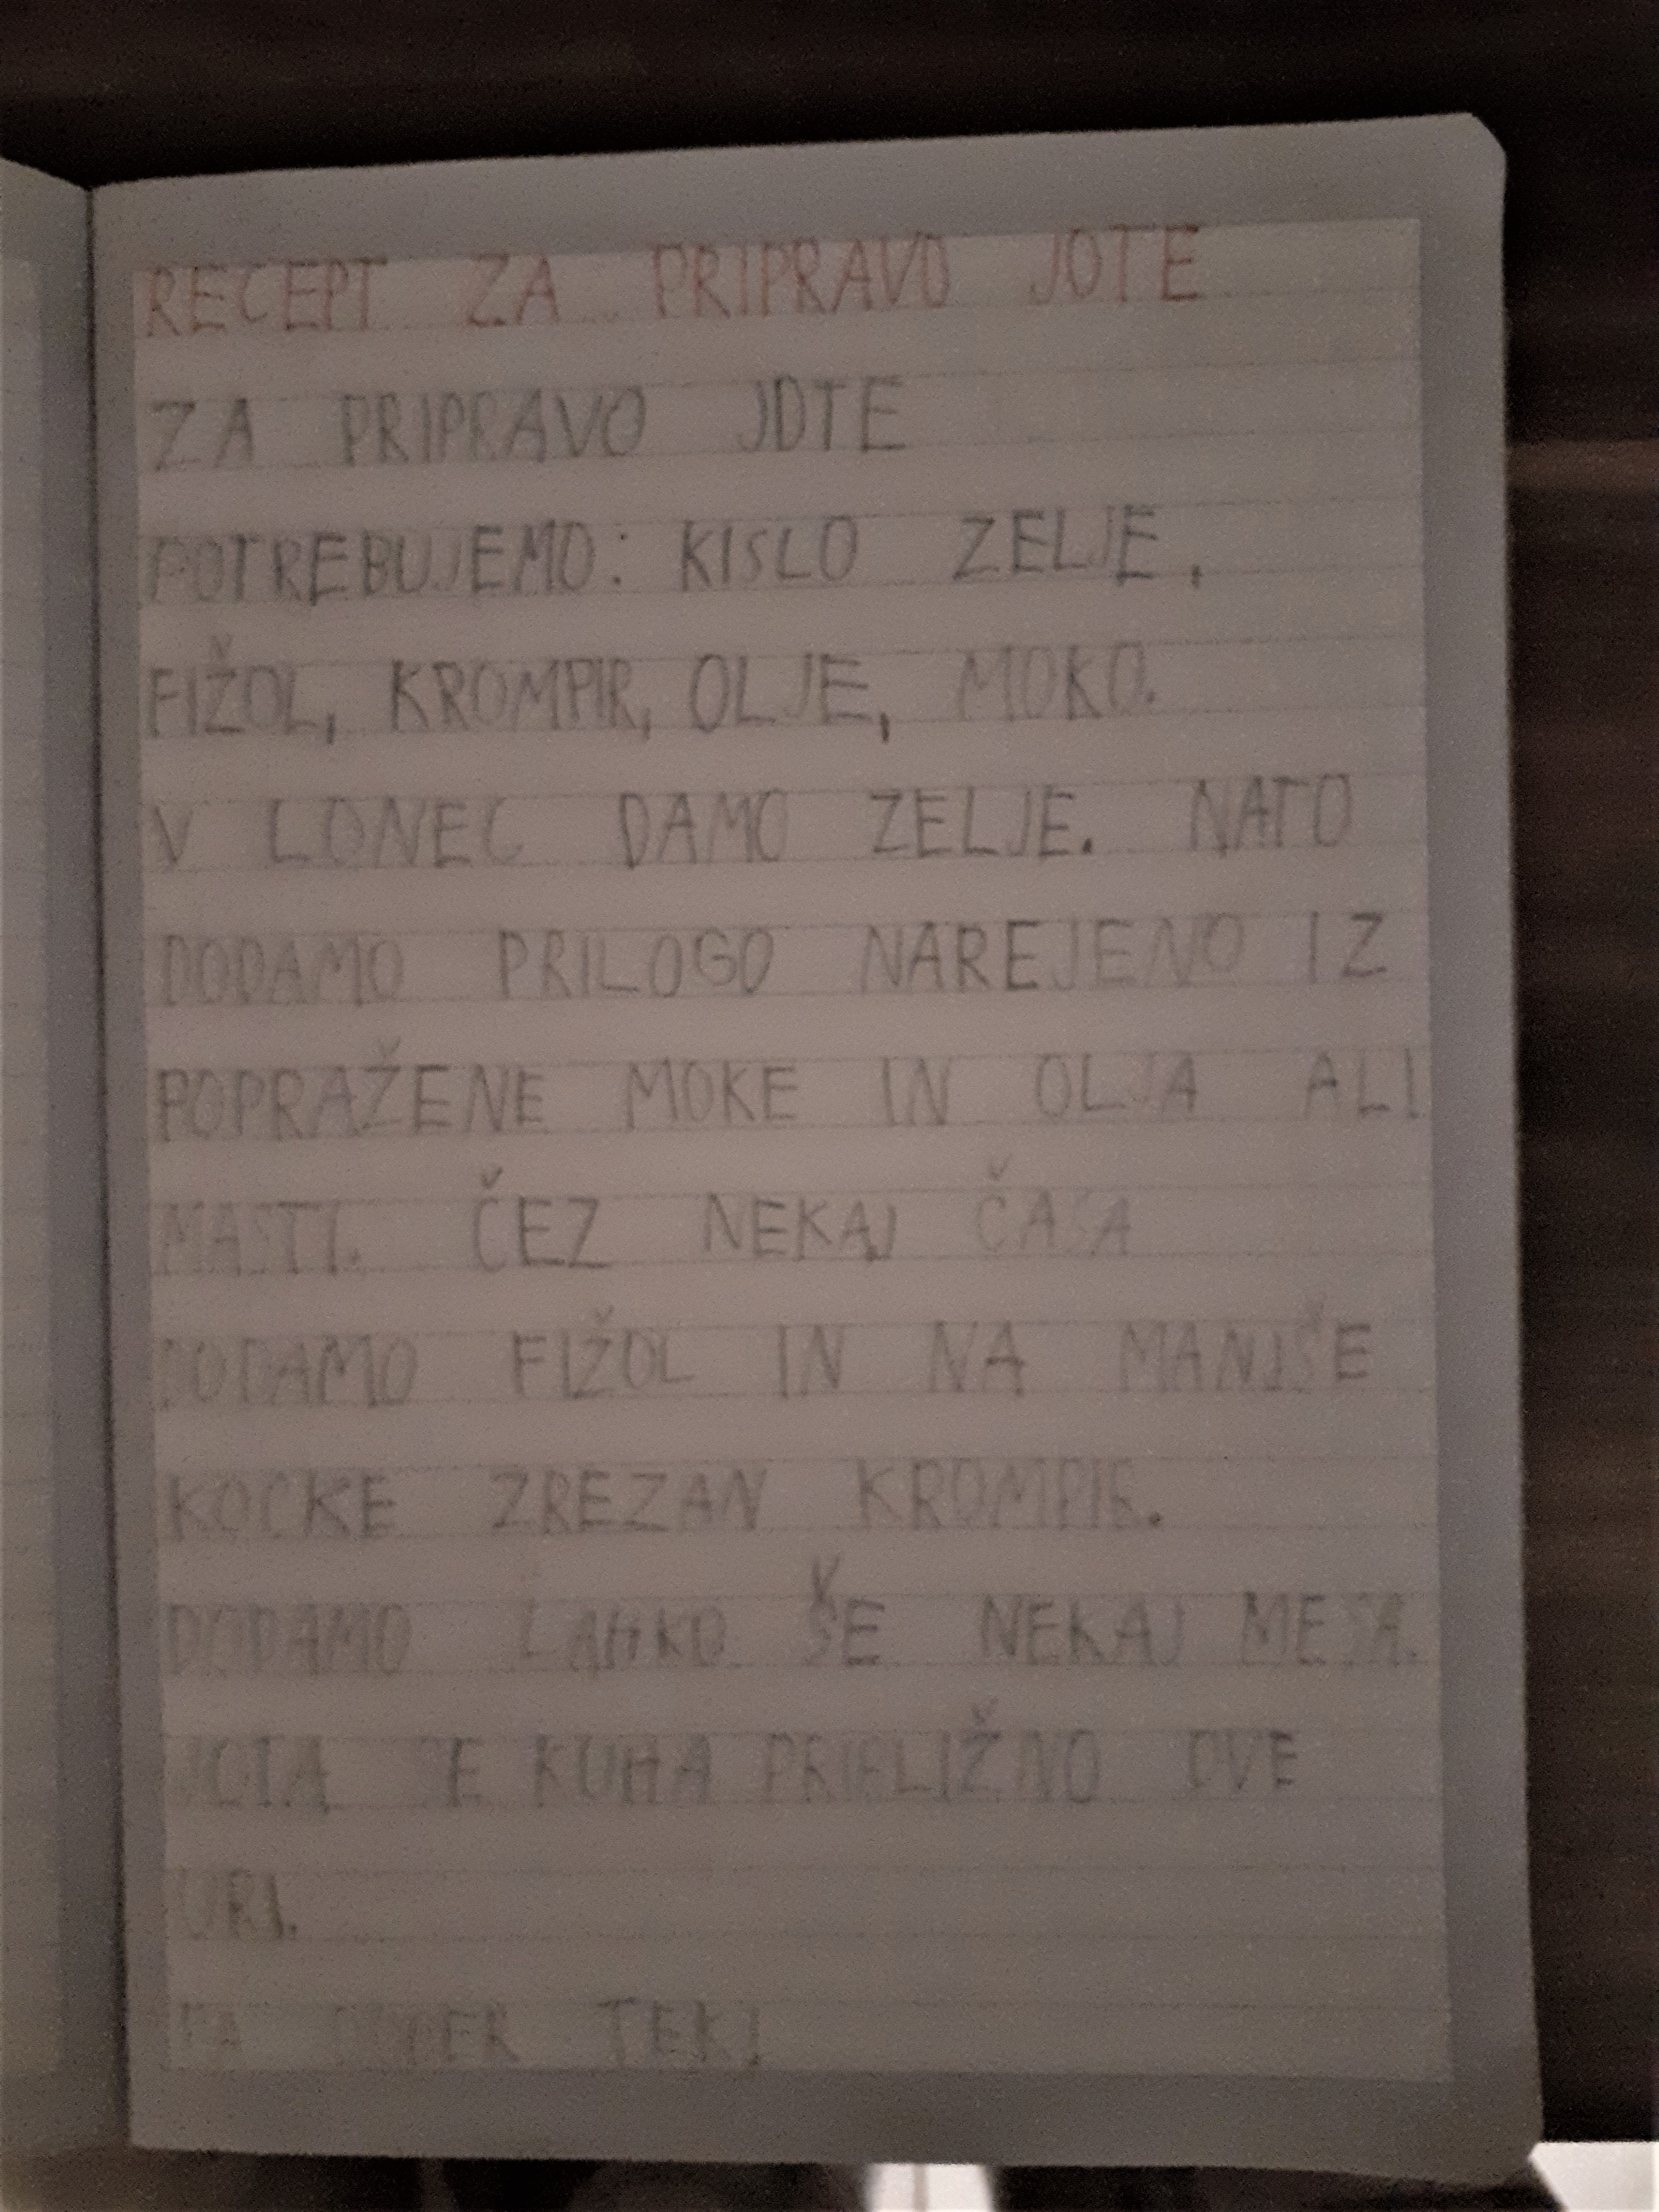 RECEPT ZA PRIPRAVO JOTE
ZA PRIPRAVO JOTE
POTREBUJEMO: KISLO ZELJE,
FIŽOL, KROMPIR, OLJE, MOKO.
V LONEC DAMO ZELJE. NATO
DODAMO PRILOGO NAREJENO IZ
POPRAŽENE MOKE IN OLJA ALI
MASTI. ČEZ NEKAJ ČASA
DODAMO FIŽOL IN NA MANJŠE
KOCKE ZREZAN KROMPIR.
DODAMO LAHKO ŠE NEKAJ MESA.
JOTA SE KUHA PRIBLIŽNO DVE
URI.
PA DOBER TEK!